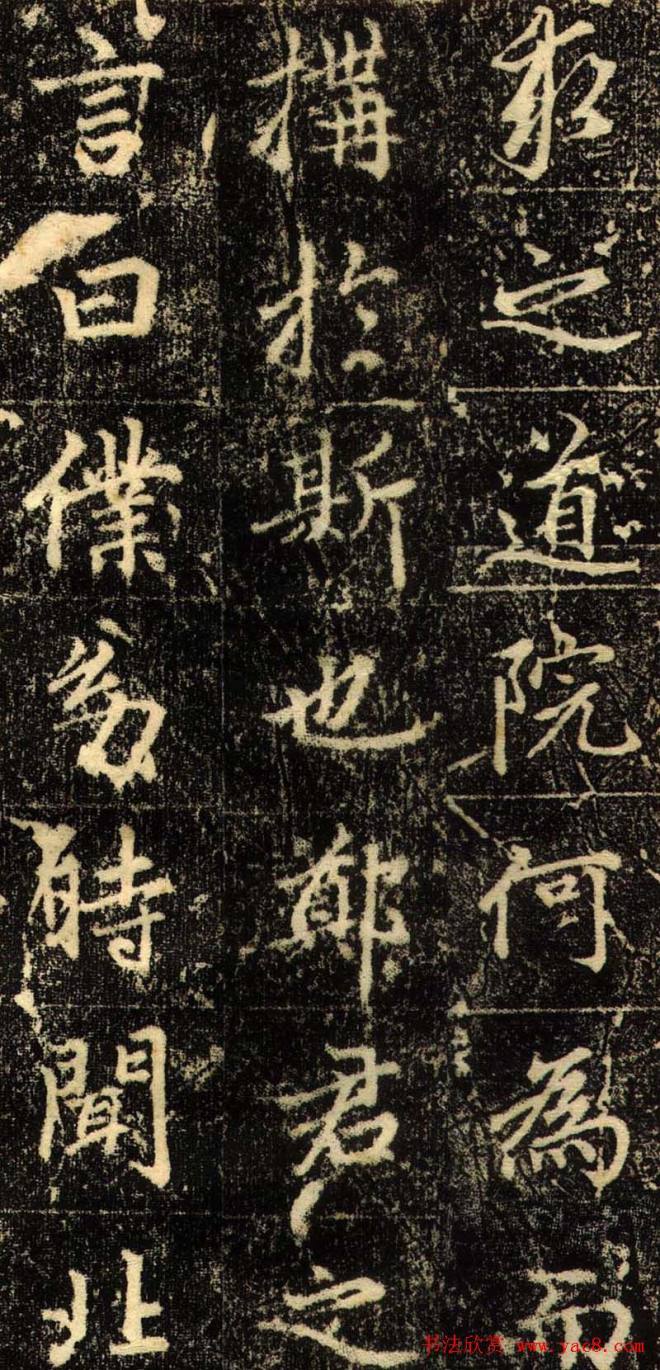 観之道院何為而
搆於斯也鄭君之
言曰僕幼時聞北
书法欣赏 www.yac8.com